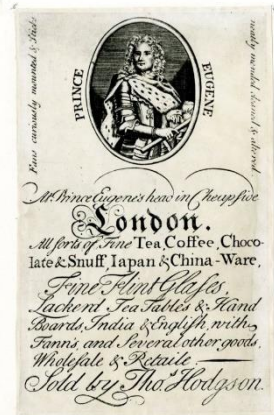 Fans curiously mounted & Sticks
PRINCE
EUGENE
neatly mended, cleaned & altered
At Prince Eugene's head in Cheapside
London.
All sorts of Fine Tea, Coffee, Choco-
late & Snuff, Iapan & China-Ware,
Fine Flint Glasses,
Lackerd Tea Tables & Hand
Boards, India & English, with
Fanns, and Several other goods,
Wholesale & Retaile
Sold by Thos. Hodgson.